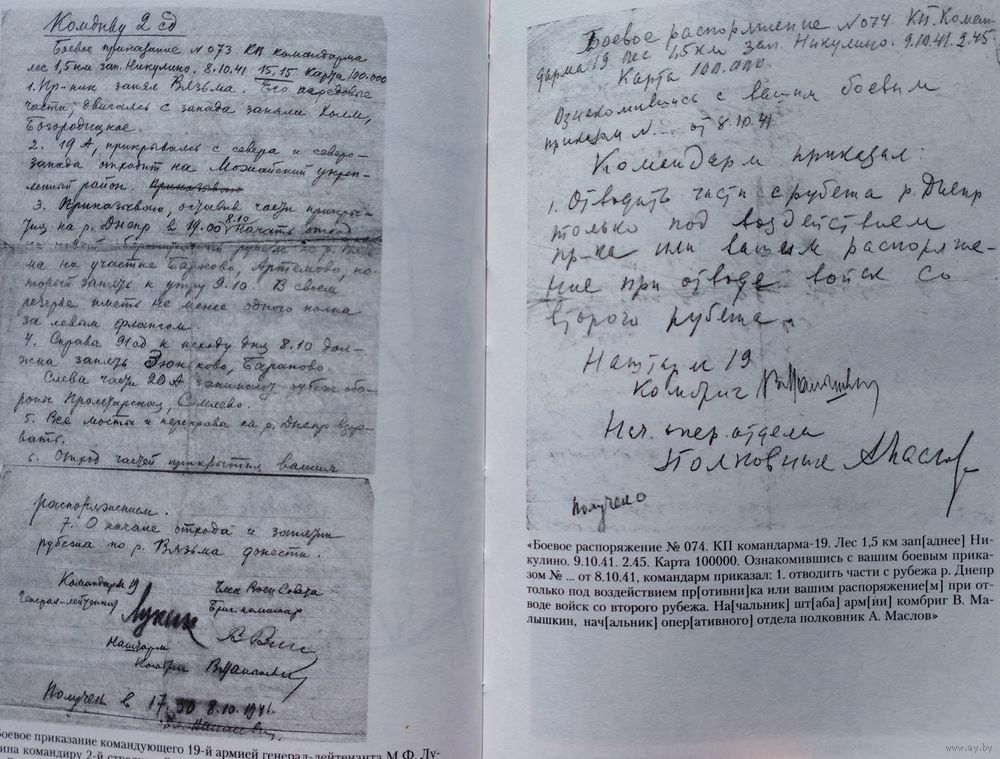 Комдиву 2 сд
Боевое приказание N 073 КП командарма
лес 1,5 км зап. Никулино. 8.10.41 15.15 Карта 100.000
1. Пр-ник занял Вязьма. Его передовые
части, двигаясь с запада заняли Холм,
Богородицкое.
2. 19 А, прикрываясь с севера и северо-
запада отходит на Можайский укреп-
ленный район. Приказываю
3. Приказываю, оставив части прикры-
тия на р. Днепр в 19.00 8.10 начать отход
на новый оборонительный рубеж р. Вязь-
ма на участке Бажково, Артемово, ко-
торый занять к утру 9.10. В своем
резерве иметь не менее одного полка
за левым флангом.
4. Справа 91 сд к исходу дня 8.10 дол-
жна занять Зюньково, Бараново.
Слева части 20 А занимают рубеж обо-
роны Пролетарская, Семлево.
5. Все мосты и переправы на р. Днепр взор-
вать.
6. Отход частей прикрытия вашим
распоряжением.
7. О начале отхода и занятии
рубежа по р. Вязьма донести.
Командарм 19 Член Воен Совета
Генерал-лейтенант Бриг. комиссар
Лукин
Наштарм
Комбриг В Малышкин
Получен в 17.30 8.10.1941г.
Боевое приказание командующего 19-й армией генерал-лейтенанта М.Ф. Лу-
кина командиру 2-й
Боевое распоряжение N 074. КП. Коман-
дарма 19. Лес 1,5 км зап. Никулино. 9.10.41. 2.45.
Карта 100.000.
Ознакомившись с вашим боевым
приказом N... от 8.10.41
Командарм приказал:
1. Отводить части с рубежа р. Днепр
только под воздействием
пр-ка или вашим распоряже-
ние при отводе войск со
второго рубежа.
Наштарм 19
Комбриг В Малышкин
Нач. опер. отдела
Полковник А Маслов
Получено
«Боевое распоряжение № 074. КП командарма-19. Лес 1,5 км зап[аднее] Ни-
кулино. 9.10.41. 2.45. Карта 100000. Ознакомившись с вашим боевым прика-
зом № ... от 8.10.41, командарм приказал: 1. отводить части с рубежа р. Днепр
только под воздействием пр[отивни]ка или вашим распоряжение[м] при от-
воде войск со второго рубежа. На[чальник] шт[аба] арм[ии] комбриг В. Ма-
лышкин, нач[альник] опер[ативного] отдела полковник А. Маслов»
www.ay.by